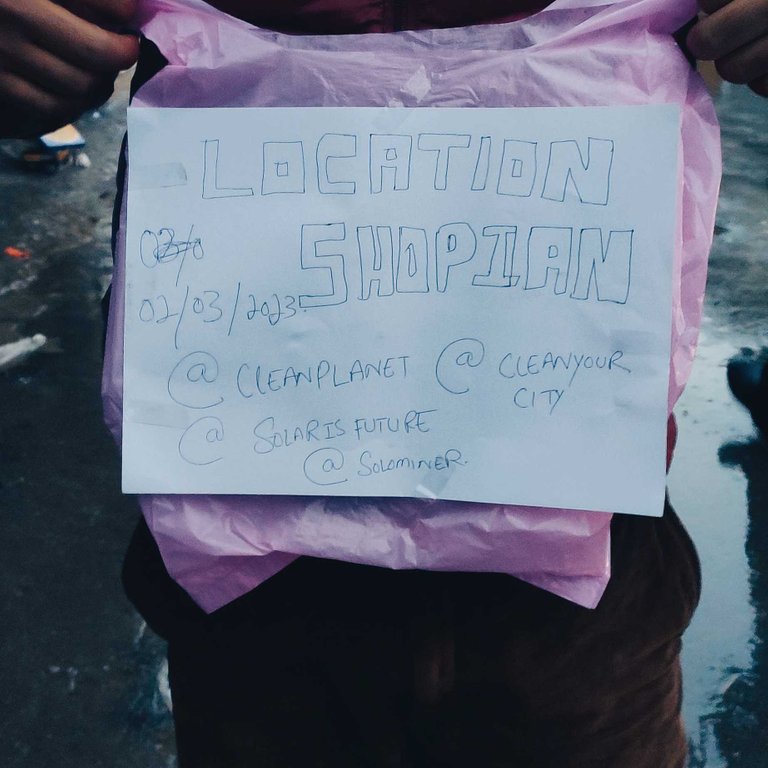 LOCATION
SHOPIAN
02/03/2023
@ CLEANPLANET @ CLEANYOUR
CITY
@ SOLARIS FUTURE
@ SOLOMINER